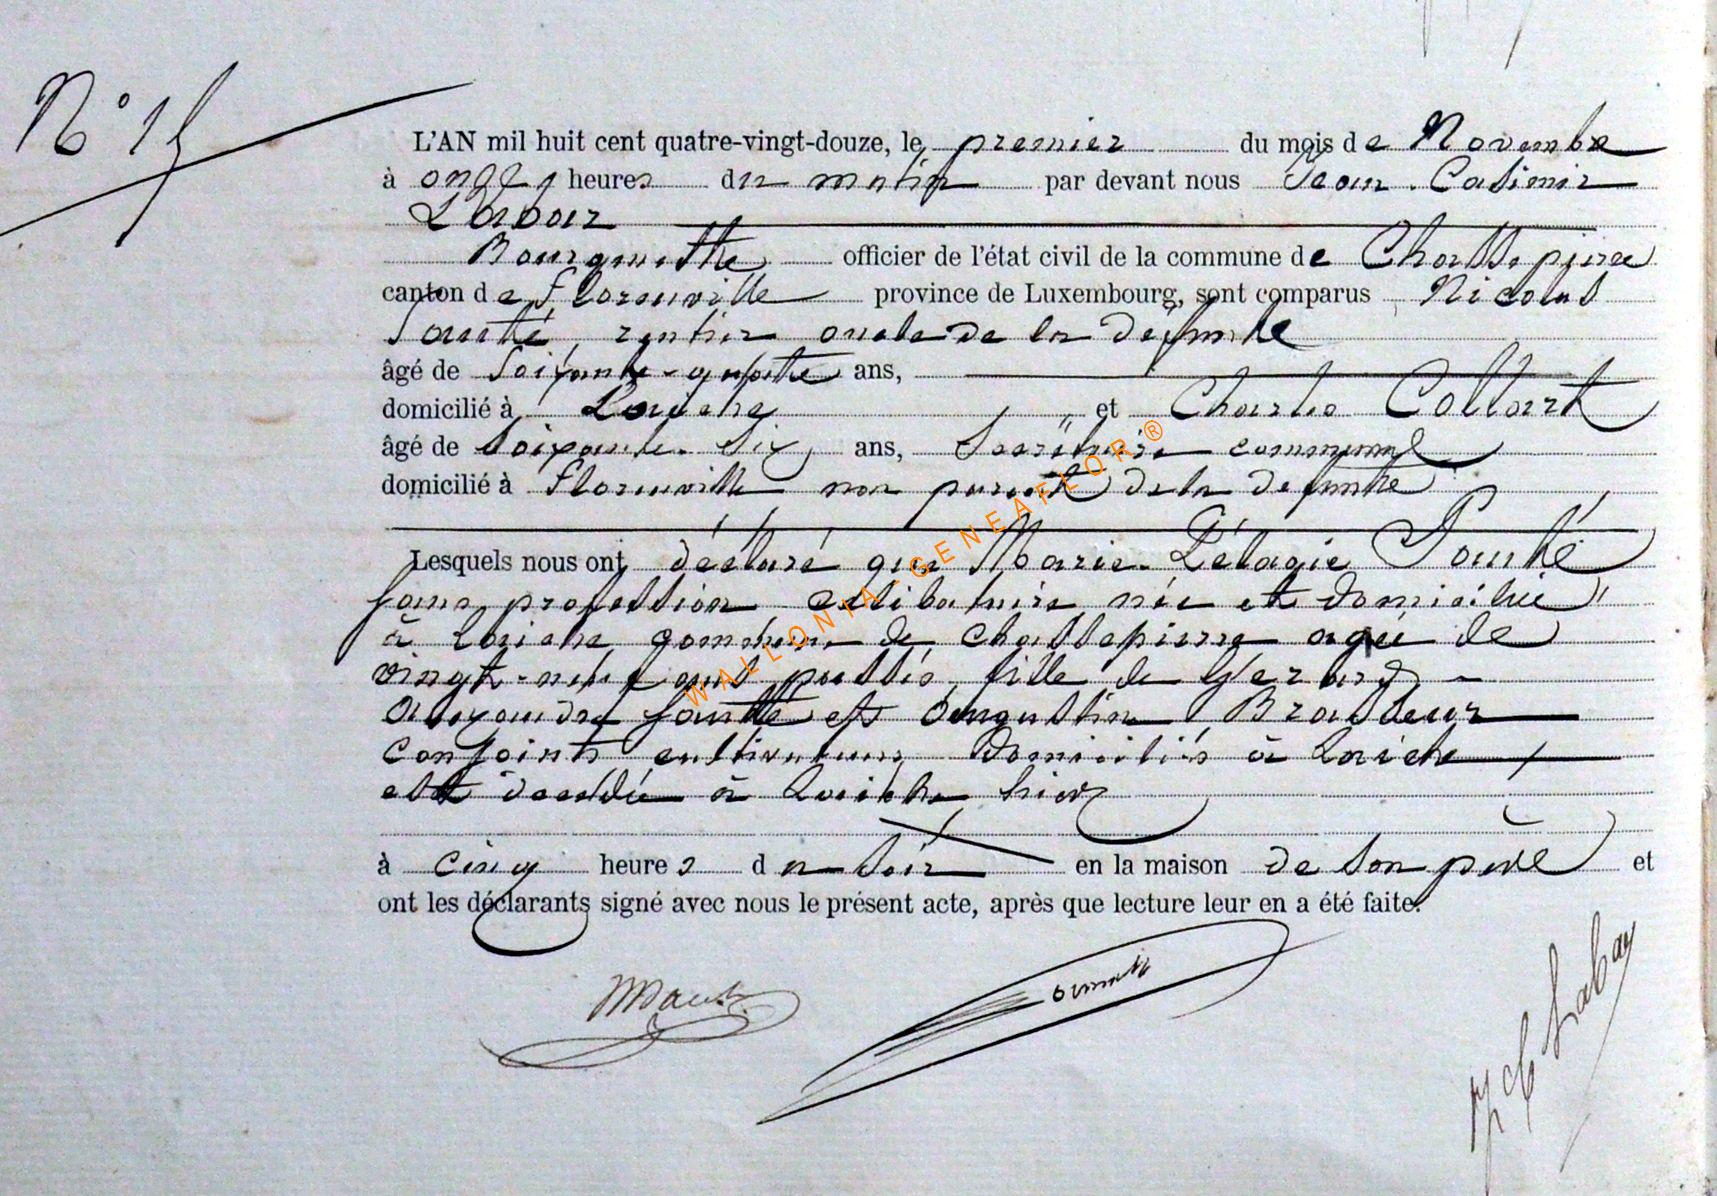 N° 15
L'AN mil huit cent quatre-vingt-douze, le premier du mois de Novembre
à onze heures du matin par devant nous Jean Casimir
Labar
Bourgmestre officier de l'état civil de la commune de Chassepierre
canton de Florenville province de Luxembourg, sont comparus Nicolas
rentier oncle de la défunte
âgé de soixante-quatre ans,
domicilié à Laiche et Charles Collart
âgé de soixante-six ans, Secrétaire communal
domicilié à Florenville non parent de la défunte
Lesquels nous ont déclaré que Marie Pélagie
sans profession célibataire née et domiciliée
à Laiche commune de Chassepierre agée de
vingt-neuf ans passés, fille de Gérard
Alexandre et Augustine Brasseur
conjoints cultivateurs domiciliés à Laiche
est décédée à Laiche hier
à cinq heures du soir en la maison de son père et
ont les déclarants signé avec nous le présent acte, après que lecture leur en a été faite.
J C Labar
WALLONIA-GENEAFLOR®